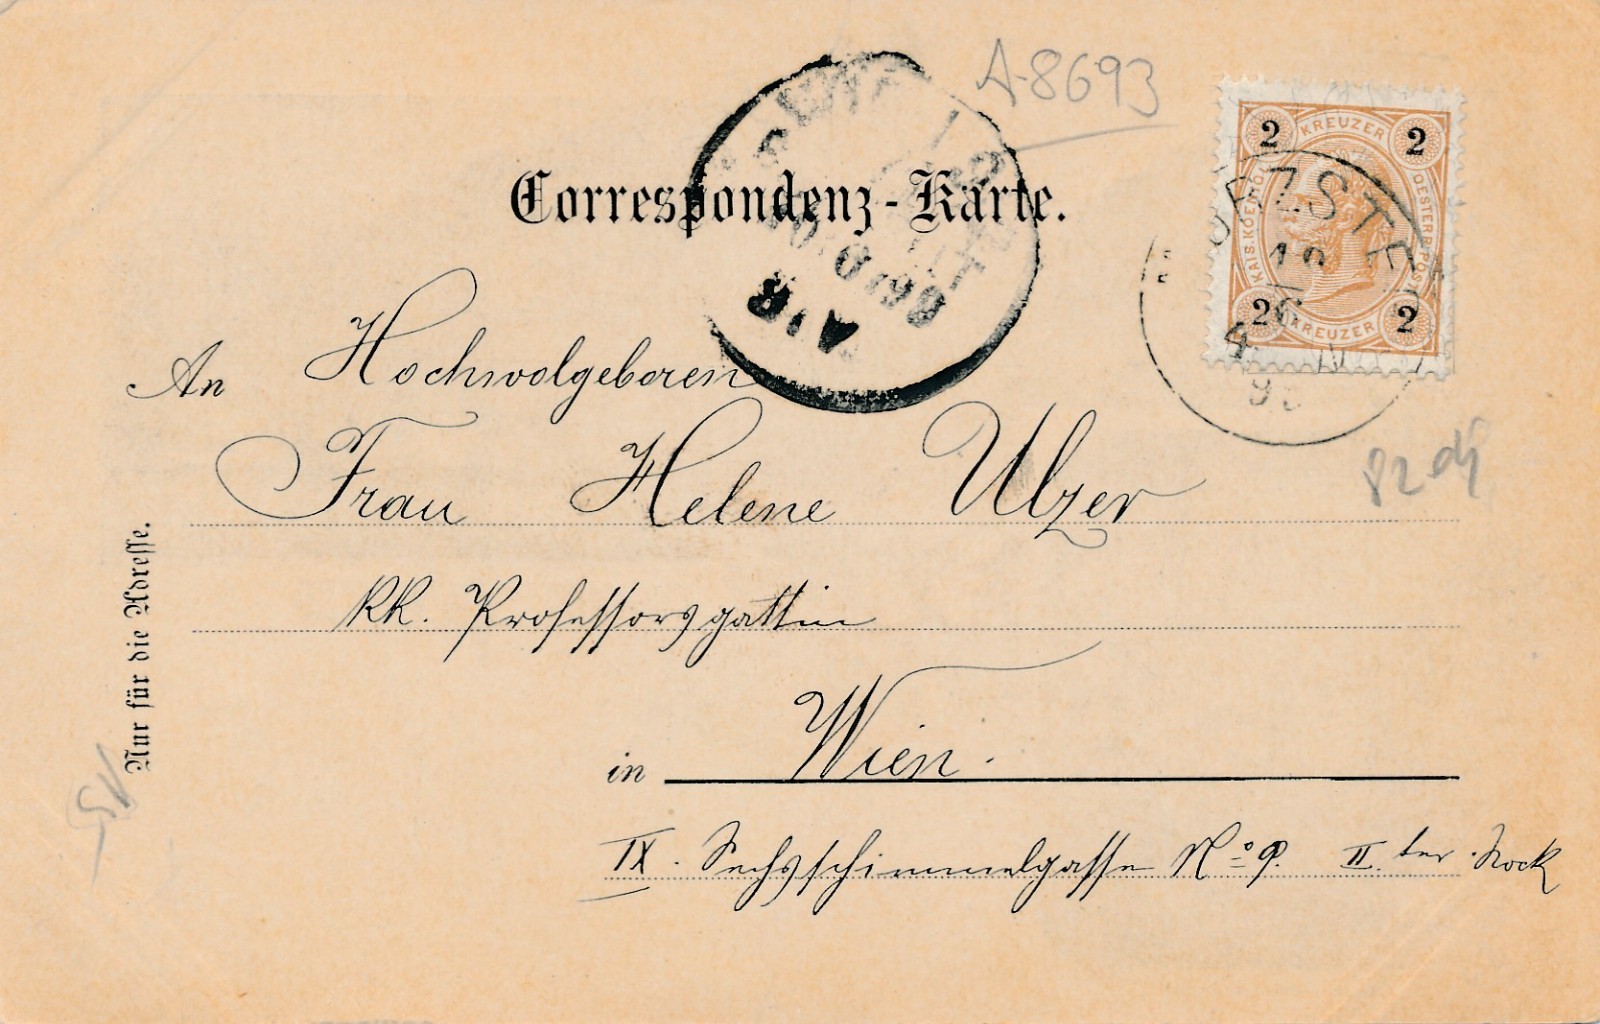 A-8693
Correspondenz-Karte.
2 KREUZER 2
KAIS. KOENIGL. OESTERR. POST
2 KREUZER 2
An Hochwolgeboren
Frau Helene Ulzer
82
kk. Professorsgattin
Nur für die Adresse.
in Wien.
IX. Sechsschimmelgasse No 9. II. ter Stock